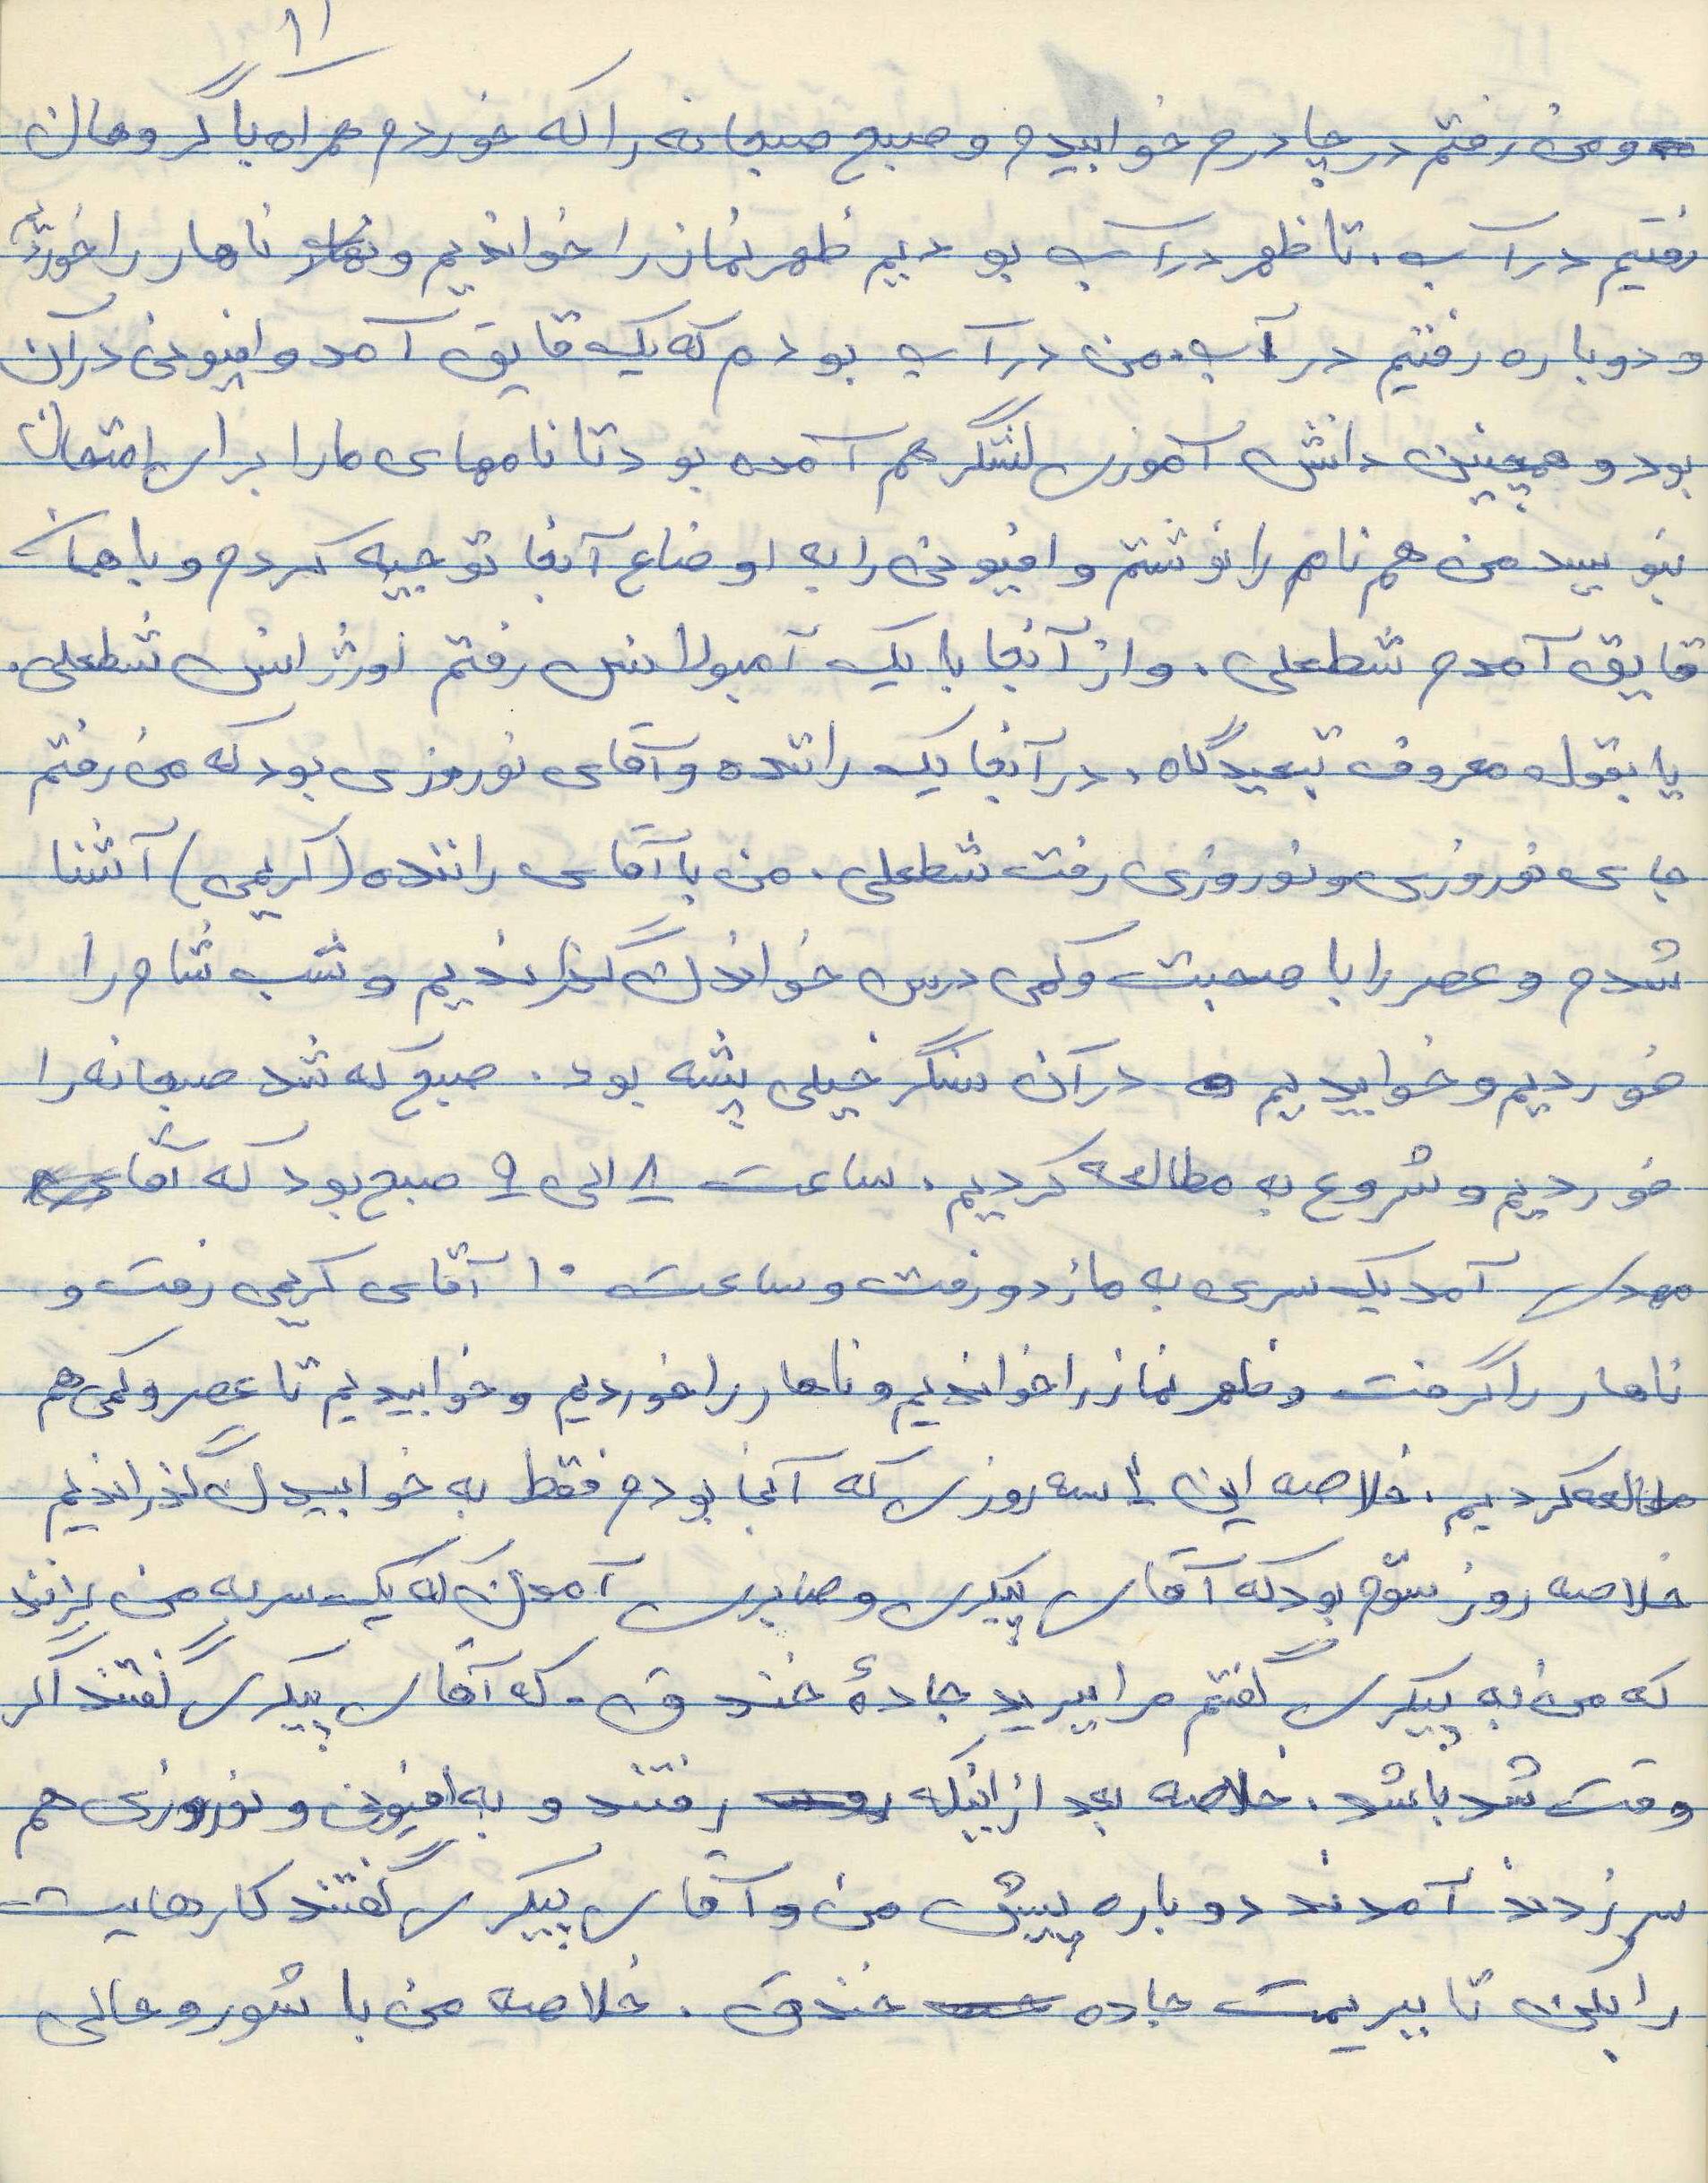 ۱۱
و من رفتم در چادرم خوابیدم و صبح صبحانه را که خوردم همراه با گروهان
رفتیم در آب. تا ظهر در آب بودیم ظهر نماز را خواندیم و ناهار را خوردیم
و دوباره رفتیم در آب. من در آب بودم که یک قایق آمد و افیونی در آن
بود و همچنین دانش آموزی لشگر هم آمده بود تا نامهای ما را برای امتحان
بنویسد من هم نامم را نوشتم و افیونی را به اوضاع آنجا توجیه کردم و با همان
قایق آمدم شطعلی. و از آنجا با یک آمبولانس رفتم اورژانس شطعلی.
یا بقول معروف تبعیدگاه. در آنجا یک راننده و آقای نوروزی بود که من رفتم
جای نوروزی و نوروزی رفت شطعلی. من با آقای راننده (کریمی) آشنا
شدم و عصر را با صحبت و کمی درس خواندن گذراندیم و شب شام را
خوردیم و خوابیدیم در آن سنگر خیلی پشه بود. صبح که شد صبحانه را
خوردیم و شروع به مطالعه کردیم. ساعت ۸ الی ۹ صبح بود که آقای
مهدی آمد یک سری به ما زد و رفت و ساعت ۱۰ آقای کریمی رفت و
ناهار را گرفت و ظهر نماز را خواندیم و ناهار را خوردیم و خوابیدیم تا عصر و کمی هم
مطالعه کردیم. خلاصه این سه روزی که آنجا بودم فقط به خوابیدن گذراندیم
خلاصه روز سوّم بود که آقای پیکری و صابری آمدن که یک سر به من بزنند
که من به پیکری گفتم مرا ببرید جادهٔ خندق. که آقای پیکری گفتند اگر
وقت شد باشد. خلاصه بعد از اینکه رفتند و به افیونی و نوروزی هم
سر زدند آمدند دوباره پیش من و آقای پیکری گفتند کارهایت
را بکن تا ببریمت جاده خندق. خلاصه من با شور و حالی